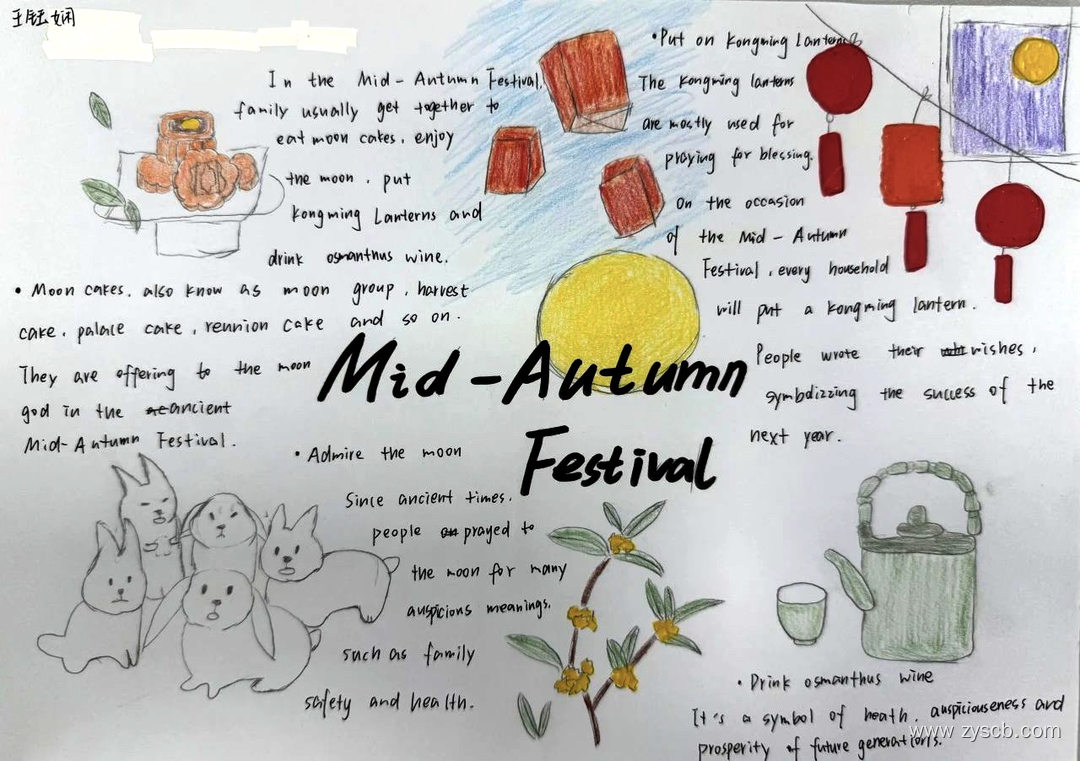 王钰娴
In the Mid-Autumn Festival,
family usually get together to
eat moon cakes, enjoy
the moon, put
kongming Lanterns and
drink osmanthus wine.
• Moon cakes, also know as moon group, harvest
cake, palace cake, reunion cake and so on.
They are offering to the moon
god in the ancient
Mid-Autumn Festival.
• Put on Kongming Lanterns
The Kongming lanterns
are mostly used for
praying for blessing.
On the occasion
of the Mid-Autumn
Festival, every household
will put a kongming lantern.
People wrote their wishes,
symbdizzing the success of the
next year.
Mid-Autumn
Festival
• Admire the moon
Since ancient times,
people prayed to
the moon for many
auspicious meanings,
such as family
safety and health.
• Drink osmanthus wine
It's a symbol of heath, auspiciouseness and
prosperity of future generations.
www.zyscb.com